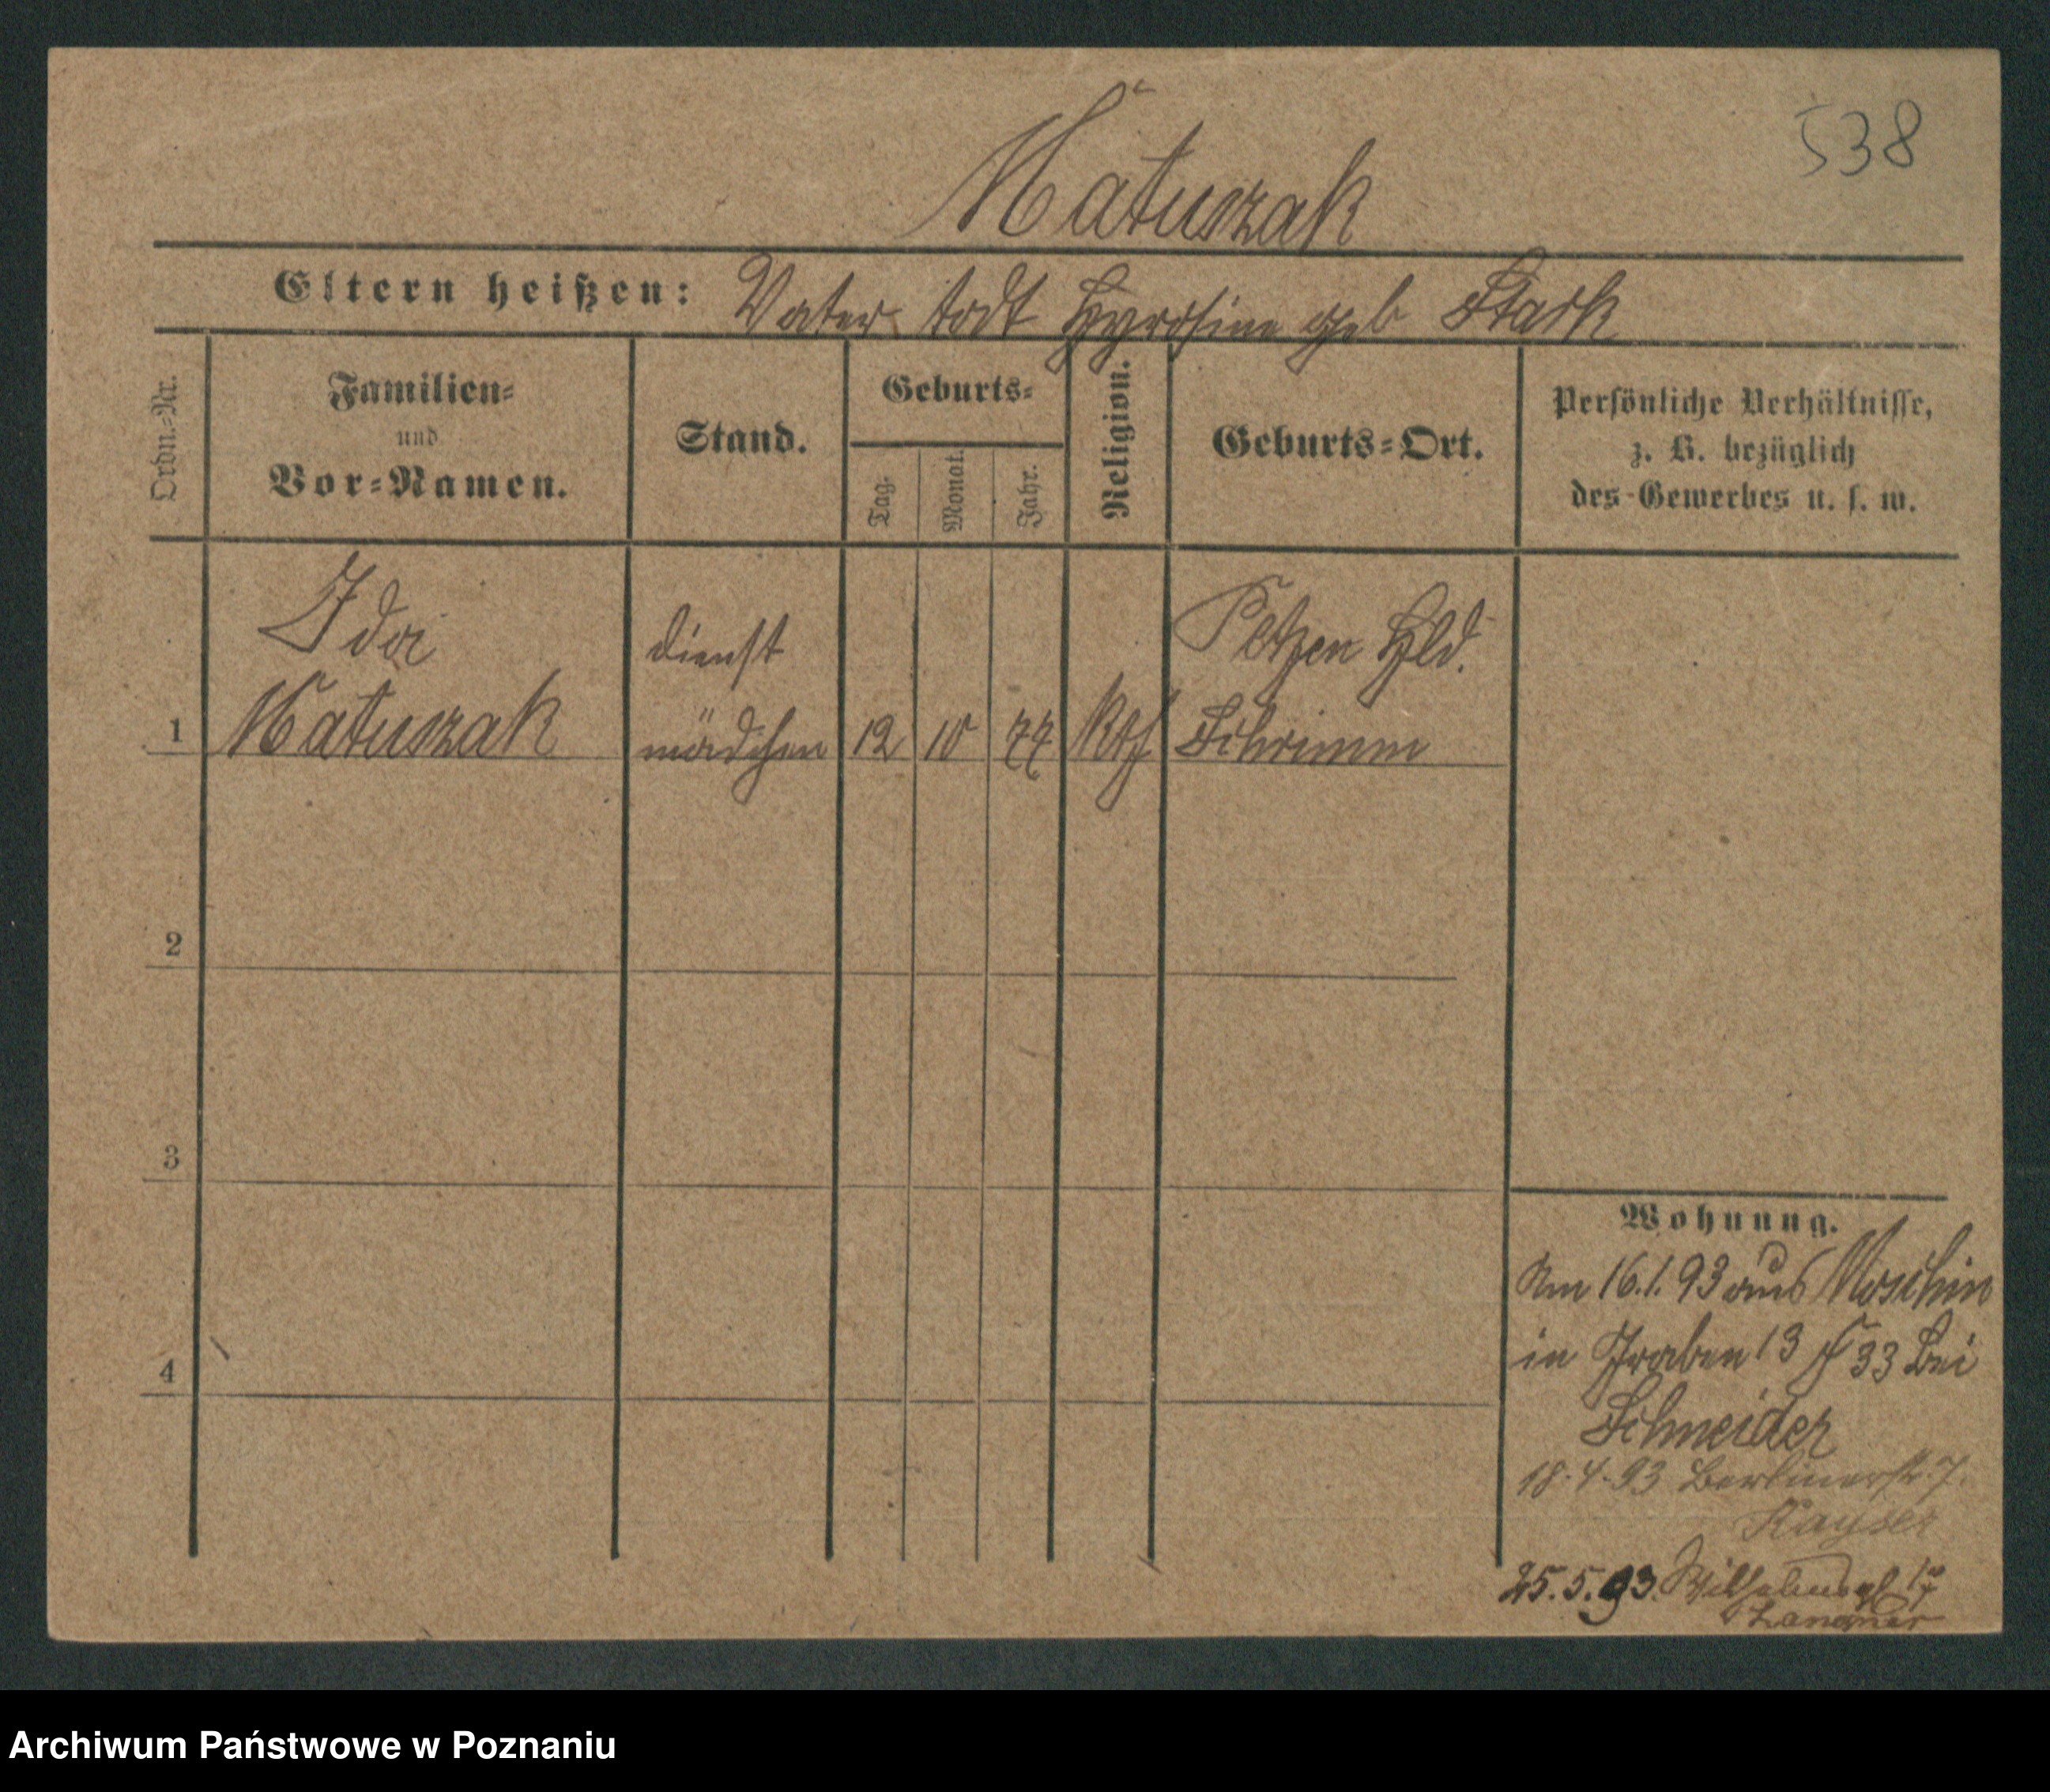 538
Matuszak
Eltern heißen: Vater todt geb Stark
Ordn.-Nr.
Familien-
und
Vor-Namen.
Stand.
Geburts-
Tag.
Monat.
Jahr.
Religion.
Geburts-Ort.
Persönliche Verhältnisse,
z. B. bezüglich
des Gewerbes u. s. w.
Ida
dienst
Petzen Hld.
1 Matuszak mädchen 12 10 77 Kth Schrimm
2
3
4
Wohnung.
Am 16.1.93 aus Moschin
in Graben 13 33 bei
Schneider
18.4.93 Berlinerstr. 7.
Kayser
25.5.93. Wilhelmspl 17
Archiwum Państwowe w Poznaniu